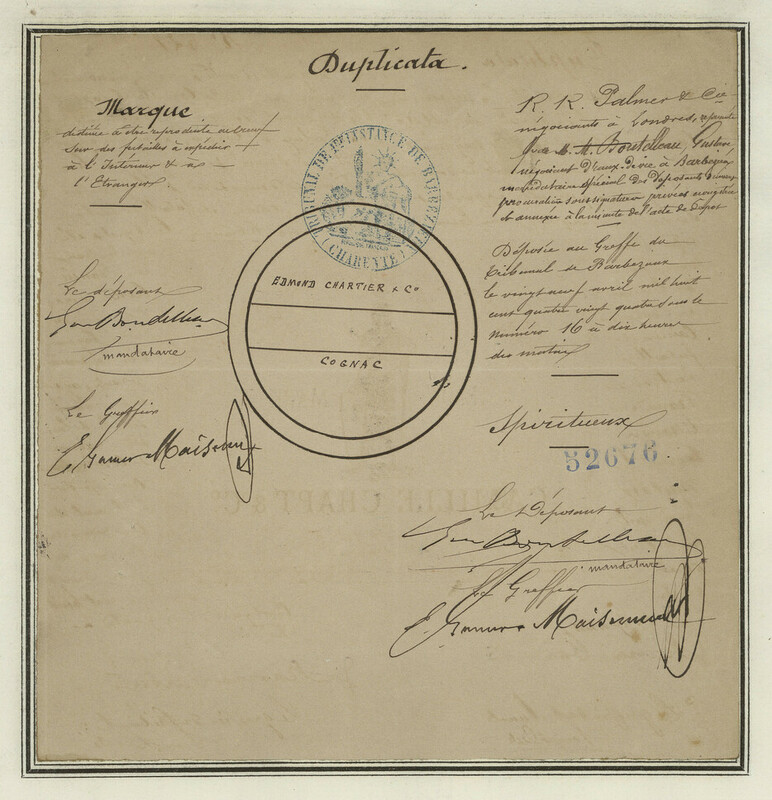 Duplicata.
Marque
destinée à être reproduite au feu
sur des futailles à expédier
à l'Intérieur & à
l'Etranger.
Le déposant
Gve Boutelleau
mandataire
Le Greffier
E. Maisonneuve
TRIBUNAL DE 1ERE INSTANCE DE BARBEZIEUX
(CHARENTE)
EDMOND CHARTIER & Co
COGNAC
R. R. Palmer & Cie
négociants à Londres, représentés
par M. M. Boutelleau, Gustave,
négociant d'eaux-de-vie à Barbezieux
mandataire spécial des déposants suivant
procuration sous signature privée enregistrée
et annexée à la minute de l'acte de dépôt
Déposée au Greffe du
Tribunal de Barbezieux
le vingt neuf avril mil huit
cent quatre vingt quatre sous le
numéro 16 à dix heures
du matin
Spiritueux
52676
Le Déposant
Gve Boutelleau
mandataire
Le Greffier
E. Maisonneuve